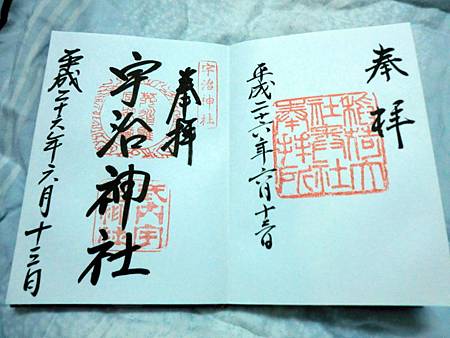 奉拝
稲荷大
社奥社
奉拝所
平成二十六年六月十三日
宇治神社
奉拝
宇治神社
平成二十六年六月十三日